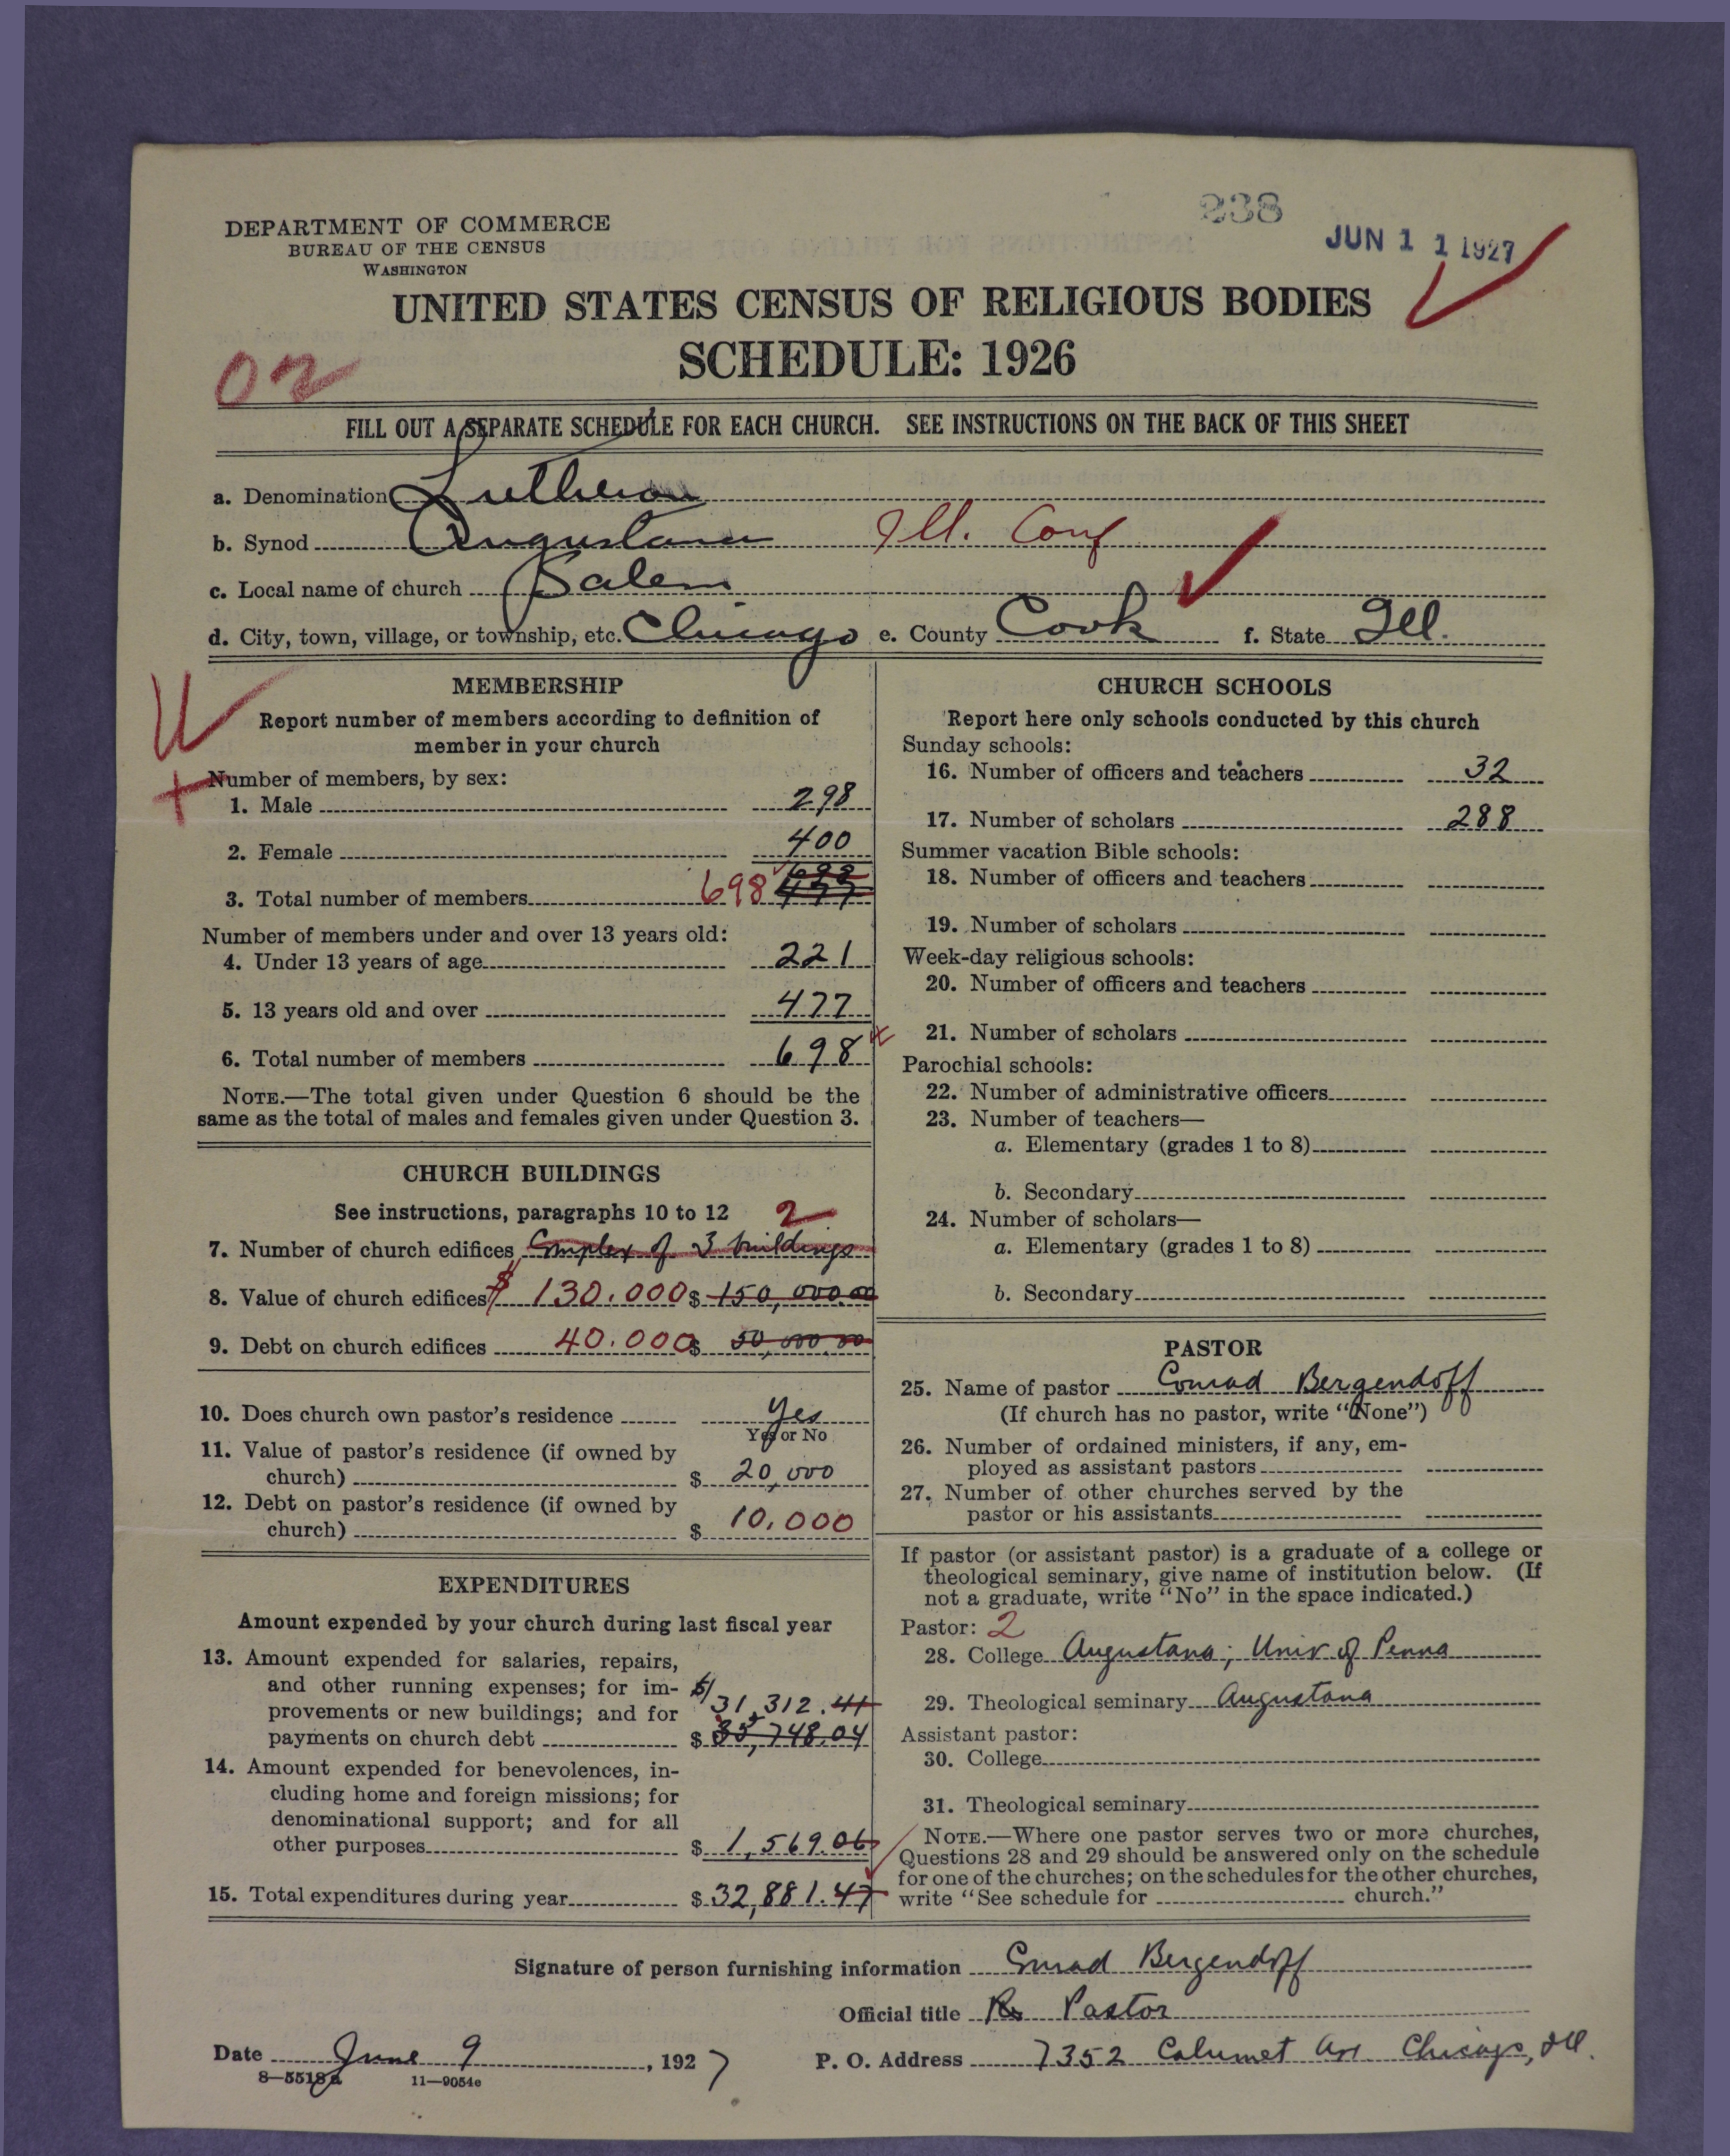 238
JUN 1 1 1927
DEPARTMENT OF COMMERCE
BUREAU OF THE CENSUS
WASHINGTON
UNITED STATES CENSUS OF RELIGIOUS BODIES
SCHEDULE: 1926
02
FILL OUT A SEPARATE SCHEDULE FOR EACH CHURCH. SEE INSTRUCTIONS ON THE BACK OF THIS SHEET
a. Denomination Lutheran
b. Synod Augustana Ill. Conf
c. Local name of church Salem
d. City, town, village, or township, etc. Chicago e. County Cook f. State Ill.
MEMBERSHIP
Report number of members according to definition of
member in your church
Number of members, by sex:
1. Male 298
2. Female 400
3. Total number of members 698 698 477
Number of members under and over 13 years old:
4. Under 13 years of age 221
5. 13 years old and over 477
6. Total number of members 698
NOTE.—The total given under Question 6 should be the
same as the total of males and females given under Question 3.
CHURCH BUILDINGS
See instructions, paragraphs 10 to 12 2
7. Number of church edifices Complex of 3 buildings
8. Value of church edifices $ 130.000 $ 150,000.00
9. Debt on church edifices 40.000 $ 50,000.00
10. Does church own pastor's residence Yes
Yes or No
11. Value of pastor's residence (if owned by
church) $ 20,000
12. Debt on pastor's residence (if owned by
church) $ 10,000
EXPENDITURES
Amount expended by your church during last fiscal year
13. Amount expended for salaries, repairs,
and other running expenses; for im-
provements or new buildings; and for 31,312.41
payments on church debt $ 35,748.04
14. Amount expended for benevolences, in-
cluding home and foreign missions; for
denominational support; and for all
other purposes $ 1,569.06
15. Total expenditures during year $ 32,881.47
CHURCH SCHOOLS
Report here only schools conducted by this church
Sunday schools:
16. Number of officers and teachers 32
17. Number of scholars 288
Summer vacation Bible schools:
18. Number of officers and teachers
19. Number of scholars
Week-day religious schools:
20. Number of officers and teachers
21. Number of scholars
Parochial schools:
22. Number of administrative officers
23. Number of teachers—
a. Elementary (grades 1 to 8)
b. Secondary
24. Number of scholars—
a. Elementary (grades 1 to 8)
b. Secondary
PASTOR
25. Name of pastor Conrad Bergendoff
(If church has no pastor, write "None")
26. Number of ordained ministers, if any, em-
ployed as assistant pastors
27. Number of other churches served by the
pastor or his assistants
If pastor (or assistant pastor) is a graduate of a college or
theological seminary, give name of institution below. (If
not a graduate, write "No" in the space indicated.)
Pastor: 2
28. College Augustana; Univ of Penna
29. Theological seminary Augustana
Assistant pastor:
30. College
31. Theological seminary
NOTE.—Where one pastor serves two or more churches,
Questions 28 and 29 should be answered only on the schedule
for one of the churches; on the schedules for the other churches,
write "See schedule for church."
Signature of person furnishing information Conrad Bergendoff
Official title Pastor
Date June 9, 1927 P. O. Address 7352 Calumet Av Chicago, Ill.
8—5518a 11—9054e